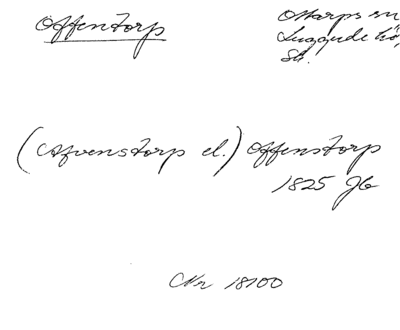 Offentorp
Ottarps sn
Luggude hd,
Sk.
(Afvenstorp el.) Offenstorp
1825 Jb
Nr 18100